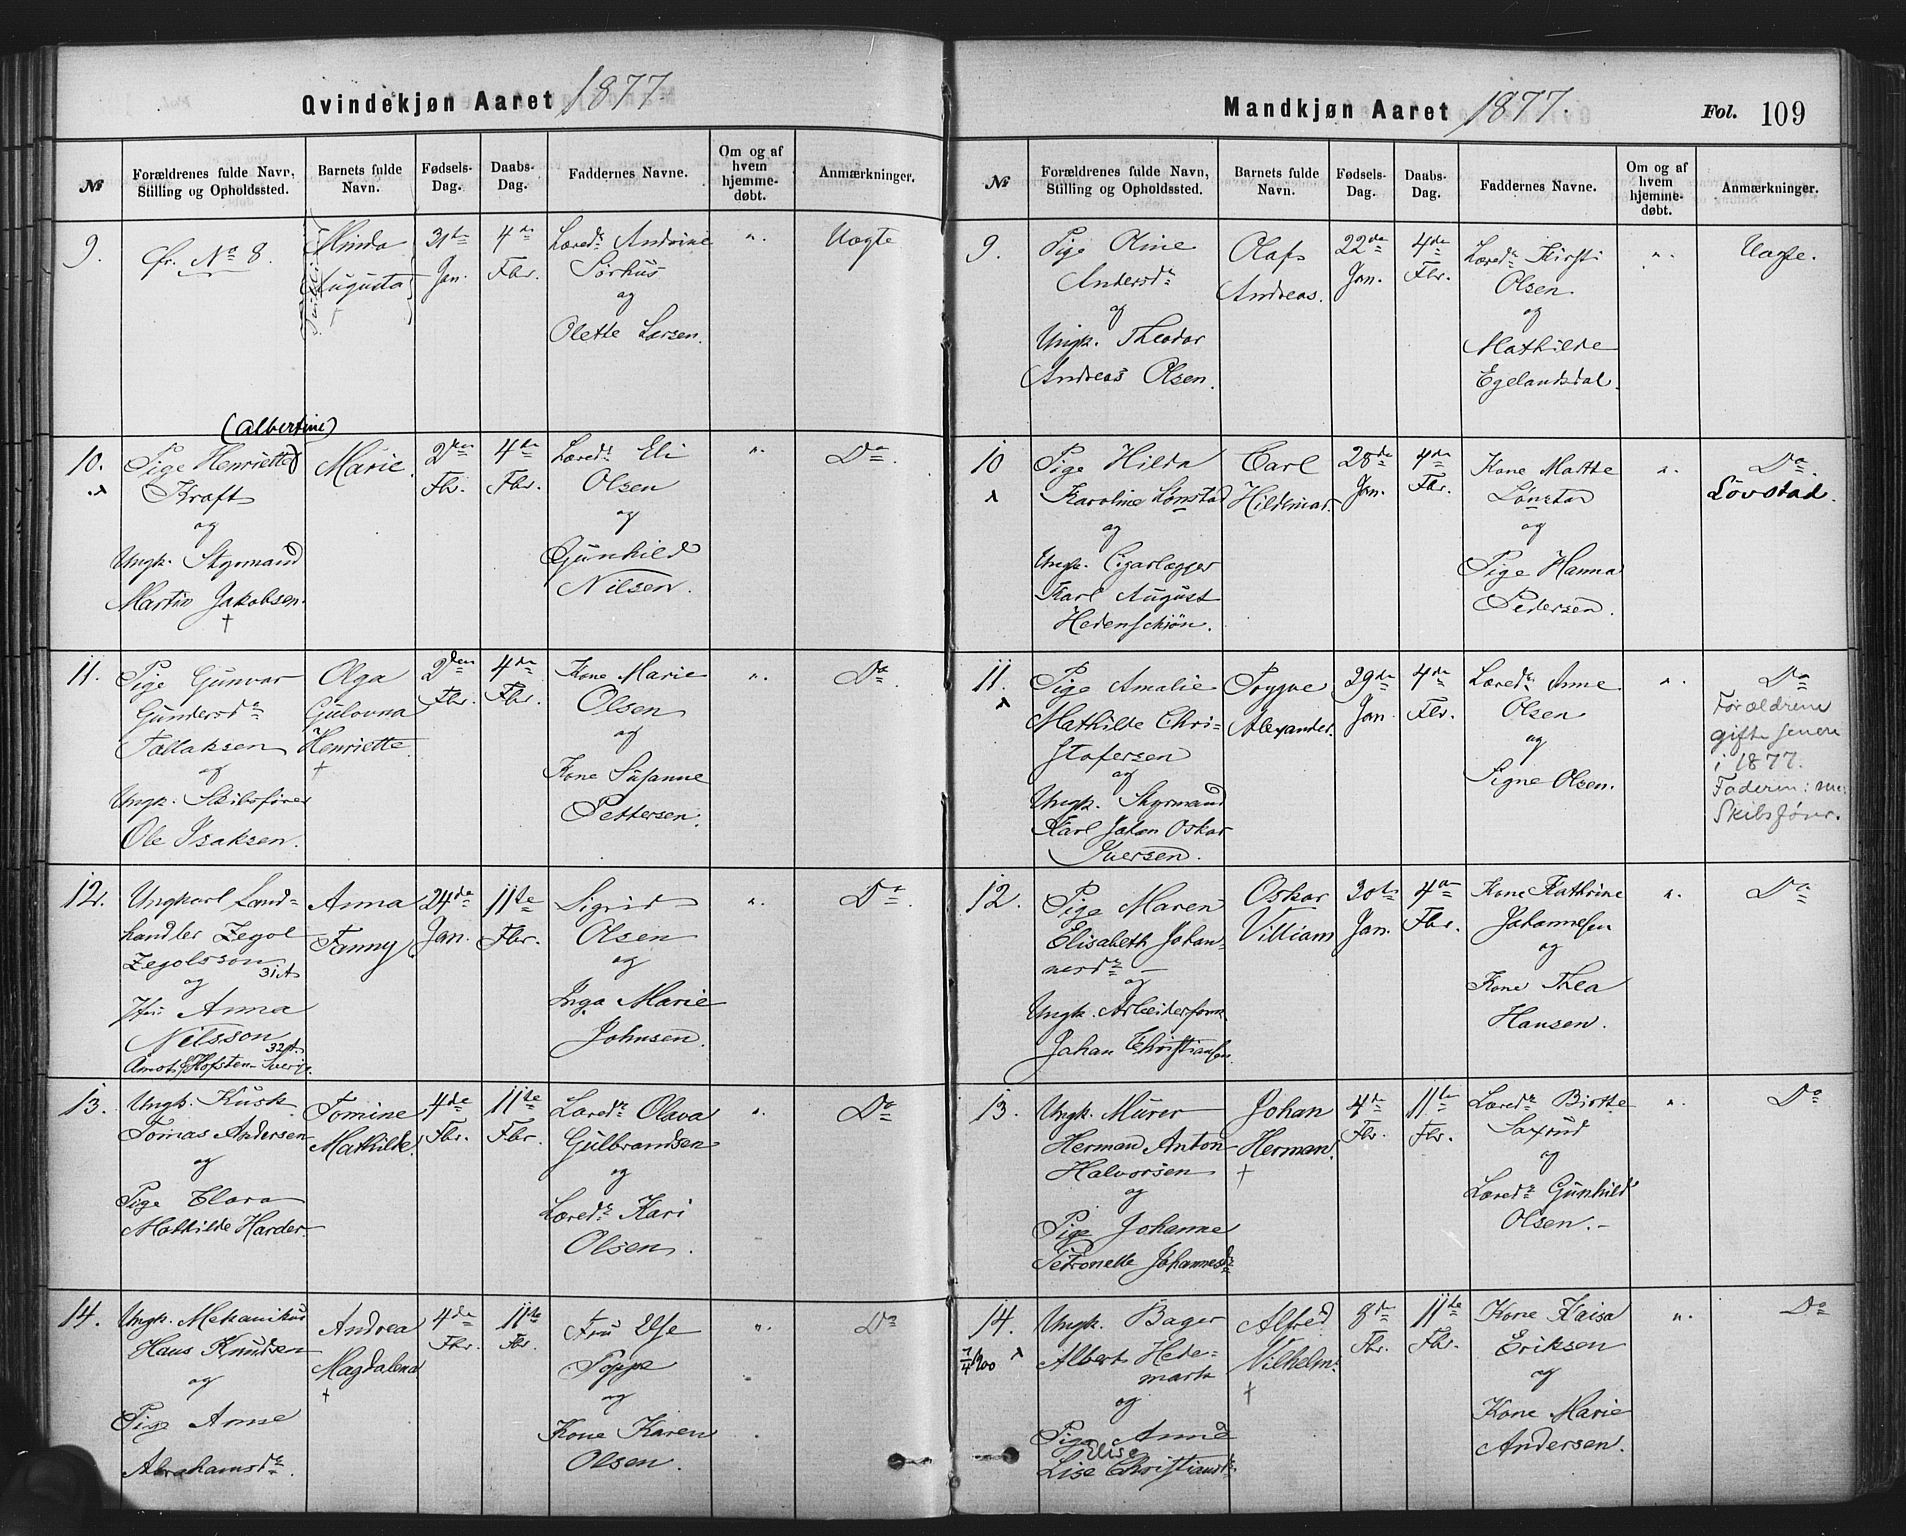 Qvindekjøn Aaret 1877.
№
Forældrenes fulde Navn, Stilling og Opholdssted.
Barnets fulde Navn.
Fødsels-Dag.
Daabs-Dag.
Faddernes Navne.
Om og af hvem hjemme-døbt.
Anmærkninger.
9.
Cfr. No 8.
Minda
Augusta
31te
Jan.
4de
Fbr.
Læred. Andrine
Sørhus
og
Olette Larsen.
".
Uægte
10.
(Albertine)
Pige Henriette
Kraft
og
Ungk. Styrmand
Martin Jakobsen.
†
Marie.
2den
Fbr.
4de
Fbr.
Læred. Eli
Olsen
og
Gunhild
Nilsen.
".
Do.
11.
Pige Gunvor
Gundersd.
Tallaksen
og
Ungk. Skibsfører
Ole Isaksen.
Olga
Gulovna
Henriette.
†
2den
Fbr.
4de
Fbr.
Kone Marie
Olsen
og
Kone Susanne
Pettersen.
".
Do.
12.
Ungkarl Land=
handler Zegol
Zegolsson 31 A
og
Jfr. Anna
Nilsson 32 A.
Anna
Fanny
24de
Jan.
11te
Fbr.
Sigrid
Olsen
og
Inga Marie
Johnsen.
".
Do.
13.
Ungk. Kusk
Tomas Andersen
og
Pige Clara
Mathilde Harder
Tomine
Mathilde.
4de
Fbr.
11te
Fbr.
Læred. Olava
Gulbrandsen
og
Læred. Kari
Olsen.
".
Do
14.
Ungk. Mekanikus
Hans Knudsen
og
Pige Anne
Abrahamsd.
Andrea
Magdalena
†
4de
Fbr.
11te
Fbr.
Fru Else
Poppe
og
Kone Karen
Olsen.
".
Do
Mandkjøn Aaret 1877.
Fol. 109
№
Forældrenes fulde Navn, Stilling og Opholdssted.
Barnets fulde Navn.
Fødsels-Dag.
Daabs-Dag.
Faddernes Navne.
Om og af hvem hjemme-døbt.
Anmærkninger.
9.
Pige Oline
Andersd.
og
Ungk. Theodor
Andreas Olsen.
Olaf
Andreas.
22de
Jan.
4de
Fbr.
Læred. Kirsti
Olsen
og
Mathilde
Egelandsdal.
".
Uægte.
10
Pige Hilda
Karoline Lønstad
og
Ungk. Cigarlægger
Karl August
Hedenschiøn.
Carl
Hildemar.
28de
Jan.
4de
Fbr.
Kone Mathe
Lønstad
og
Pige Hanna
Pedersen.
".
Do.
Lövstad.
11.
Pige Amalie
Mathilde Chri=
stofersen
og
Ungk. Styrmand
Karl Johan Oskar
Iversen.
Trygve
Alexander.
29de
Jan.
4de
Fbr.
Læred. Anne
Olsen
og
Signe Olsen.
".
Do
Forældrene
gift senere
i 1877.
Faderen:
Skibsfører.
12.
Pige Maren
Elisabeth Johan=
nesd.
og
Ungk. Arbeiderform.
Johan Christiansen
Oskar
Villiam
30te
Jan.
4de
Fbr.
Kone Kathrine
Johannesen
og
Kone Thea
Hansen.
".
Do
13.
Ungk. Murer
Herman Anton
Halvorsen
og
Pige Johanne
Petronelle Johannesd.
Johan
Herman.
†
4de
Fbr.
11te
Fbr.
Læred. Birthe
Saxrud
og
Læred. Gunhild
Olsen.
".
Do
14.
Ungk. Bager
Albert Hede=
mark
og
Pige Anne
Elise
Lise Christiansd.
Alfred
Vilhelm.
†
8de
Fbr.
11te
Fbr.
Kone Kaisa
Eriksen
og
Kone Marie
Andersen.
".
Do